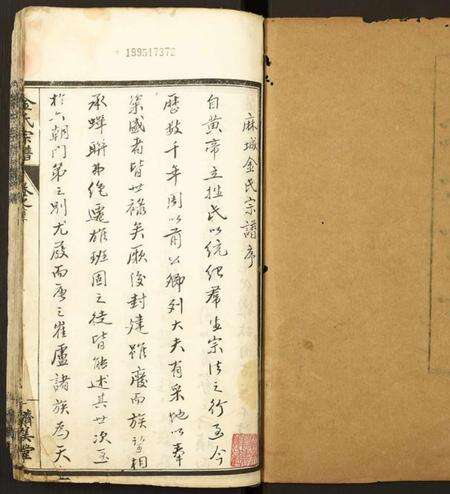 199517372
麻城金氏宗譜序
自黃帝立姓氏以統紀羣生宗法之行至今
歷數千年周以前公卿列大夫有采地以奉
粢盛者皆世祿矣厥後封建雖廢而族皆相
承蟬聯弗絕遷雄班固之徒皆能述其世次至
於六朝門第之別尤嚴而唐之崔盧諸族為天
金氏宗譜